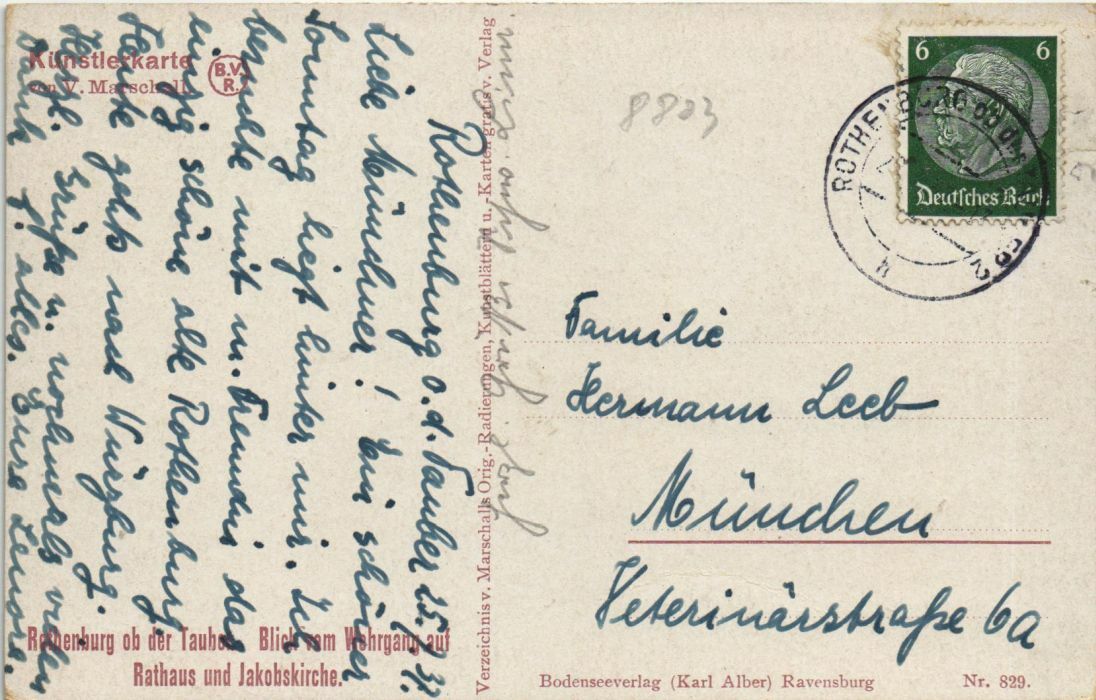 Künstlerkarte
von V. Marschall
B.V.
R.
Rothenburg o. d. Tauber
Liebe Münchner! Ein schöner
Sonntag liegt hinter mir. Ich
besuchte mit m. Freundin das
einzig schöne alte Rothenburg.
Heute gehts nach Würzburg.
Herzl. Grüße u. nochmals vielen
Dank f. alles. Eure Lenore.
Rothenburg ob der Tauber. Blick vom Wehrgang auf
Rathaus und Jakobskirche.
Verzeichnis v. Marschalls Orig.-Radierungen, Kunstblättern u. -Karten gratis v. Verlag
6 6
Deutsches Reich
Familie
Hermann Leeb
München
Veterinärstraße 6a
Bodenseeverlag (Karl Alber) Ravensburg Nr. 829.